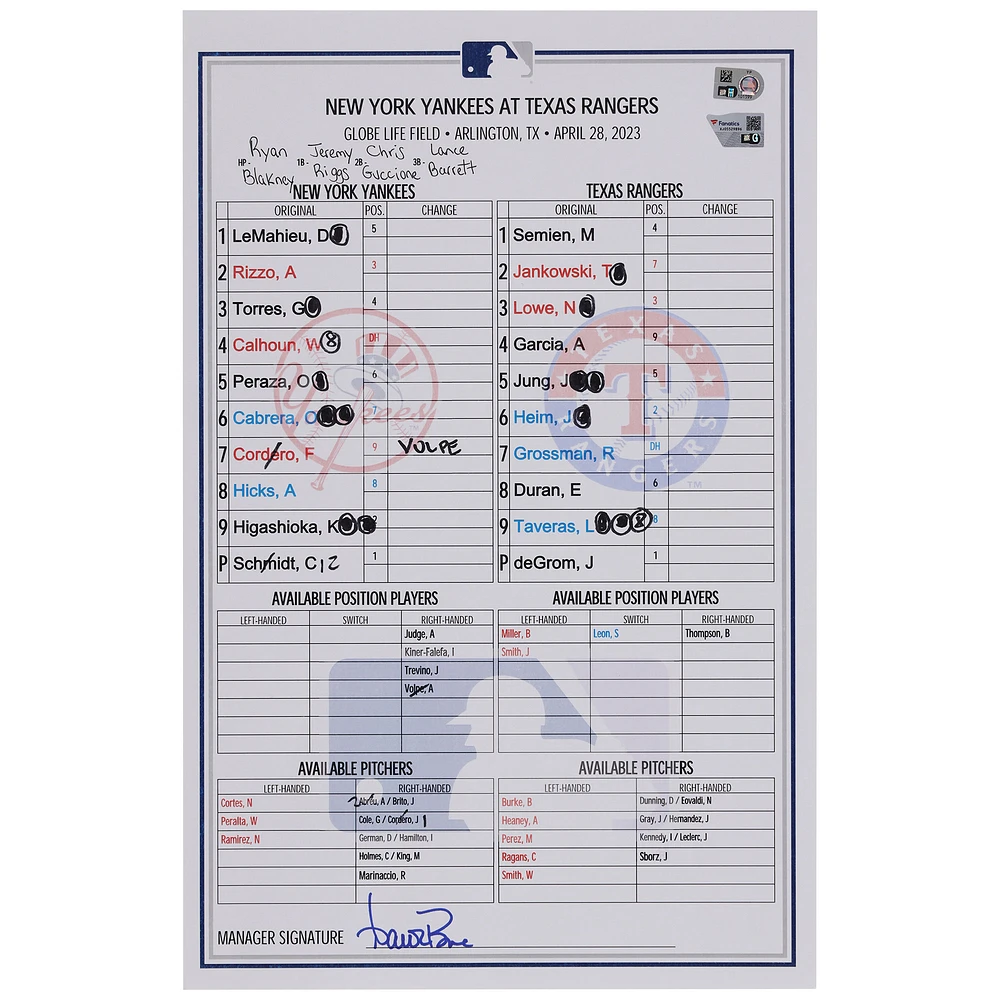 NEW YORK YANKEES AT TEXAS RANGERS
GLOBE LIFE FIELD • ARLINGTON, TX • APRIL 28, 2023
Fanatics
Ryan Jeremy Chris Lance
HP- 1B- 2B- 3B-
Blakney Riggs Guccione Barrett
NEW YORK YANKEES
ORIGINAL POS. CHANGE
1 LeMahieu, D 5
2 Rizzo, A 3
3 Torres, G 4
4 Calhoun, W 8 DH
5 Peraza, O 6
6 Cabrera, O 7
7 Cordero, F 9 VOLPE
8 Hicks, A 8
9 Higashioka, K 2
P Schmidt, C 12 1
TEXAS RANGERS
ORIGINAL POS. CHANGE
1 Semien, M 4
2 Jankowski, T 7
3 Lowe, N 3
4 Garcia, A 9
5 Jung, J 5
6 Heim, J 2
7 Grossman, R DH
8 Duran, E 6
9 Taveras, L 8
P deGrom, J 1
TEXAS
RANGERS
TM
AVAILABLE POSITION PLAYERS
LEFT-HANDED SWITCH RIGHT-HANDED
Judge, A
Kiner-Falefa, I
Trevino, J
Volpe, A
AVAILABLE POSITION PLAYERS
LEFT-HANDED SWITCH RIGHT-HANDED
Miller, B Leon, S Thompson, B
Smith, J
AVAILABLE PITCHERS
LEFT-HANDED RIGHT-HANDED
Cortes, N 2 Abreu, A / Brito, J
Peralta, W Cole, G / Cordero, J 1
Ramirez, N German, D / Hamilton, I
Holmes, C / King, M
Marinaccio, R
AVAILABLE PITCHERS
LEFT-HANDED RIGHT-HANDED
Burke, B Dunning, D / Eovaldi, N
Heaney, A Gray, J / Hernandez, J
Perez, M Kennedy, I / Leclerc, J
Ragans, C Sborz, J
Smith, W
MANAGER SIGNATURE